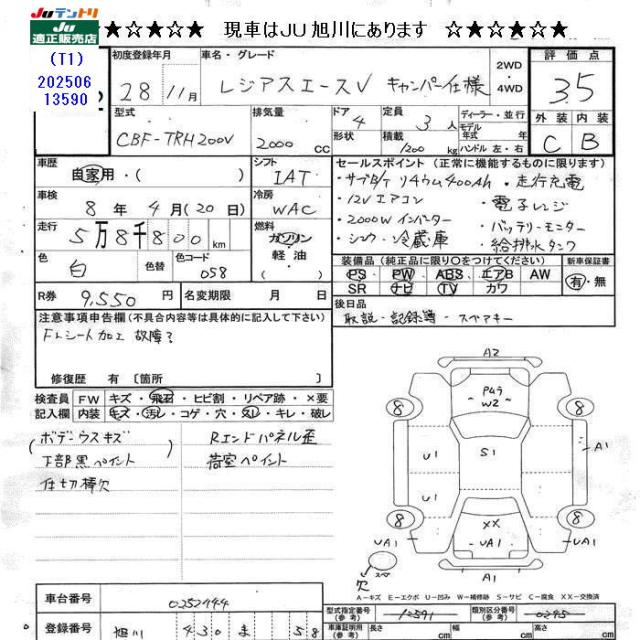 JUテントリ
JU
適正販売店
(T1)
202506
13590
☆★☆★☆★☆ 現車はJU旭川にあります ☆★☆★☆★☆
初度登録年月
28 11月
車名・グレード
レジアスエースV キャンパー仕様
2WD
4WD
評価点
3.5
型式
CBF-TRH200V
排気量
2000 cc
ドア
4
形状
定員
3人
積載
1200 kg
ディーラー・並行
モデル年式 年
ハンドル 左・右
外装 内装
C B
車歴
自家用・( )
シフト
IAT
車検
8年 4月(20日)
冷房
WAC
走行
5万8千800km
燃料
ガソリン
軽油
色
白
色替
色コード
058
R券
9,550 円
名変期限 月 日
セールスポイント(正常に機能するものに限ります)
・サブB/T リチウム400Ah ・走行充電
・12Vエアコン ・電子レンジ
・2000Wインバーター ・バッテリーモニター
・シンク・冷蔵庫 ・給排水タンク
装備品(純正品に限り○をつけてください)
PS PW ABS エアB AW
SR ナビ TV カワ
新車保証書
有・無
後日品
取説・記録簿・スペアキー
注意事項申告欄(不具合内容等は具体的に記入して下さい)
FLシート加工 故障?
修復歴 有〔箇所 〕
検査員記入欄
FW キズ・飛石・ヒビ割・リペア跡・×要
内装 キズ・汚レ・コゲ・穴・スレ・キレ・破レ
ボデーウスキズ
下部黒ペイント
仕切棒欠
Rエンドパネル歪
荷室ペイント
A2
P4う
W2
8
8
U1
S1
A1
U1
8
8
XX
UA1
UA1
UA1
A1
スペア
欠
A-キズ E-エクボ U-凹み W-補修跡 S-サビ C-腐食 XX-交換済
車台番号
0252744
登録番号
旭川 430 ま 58
型式指定番号(参考)
12591
類別区分番号(参考)
0295
車庫証明用(参考)
長さ cm
幅 cm
高さ cm